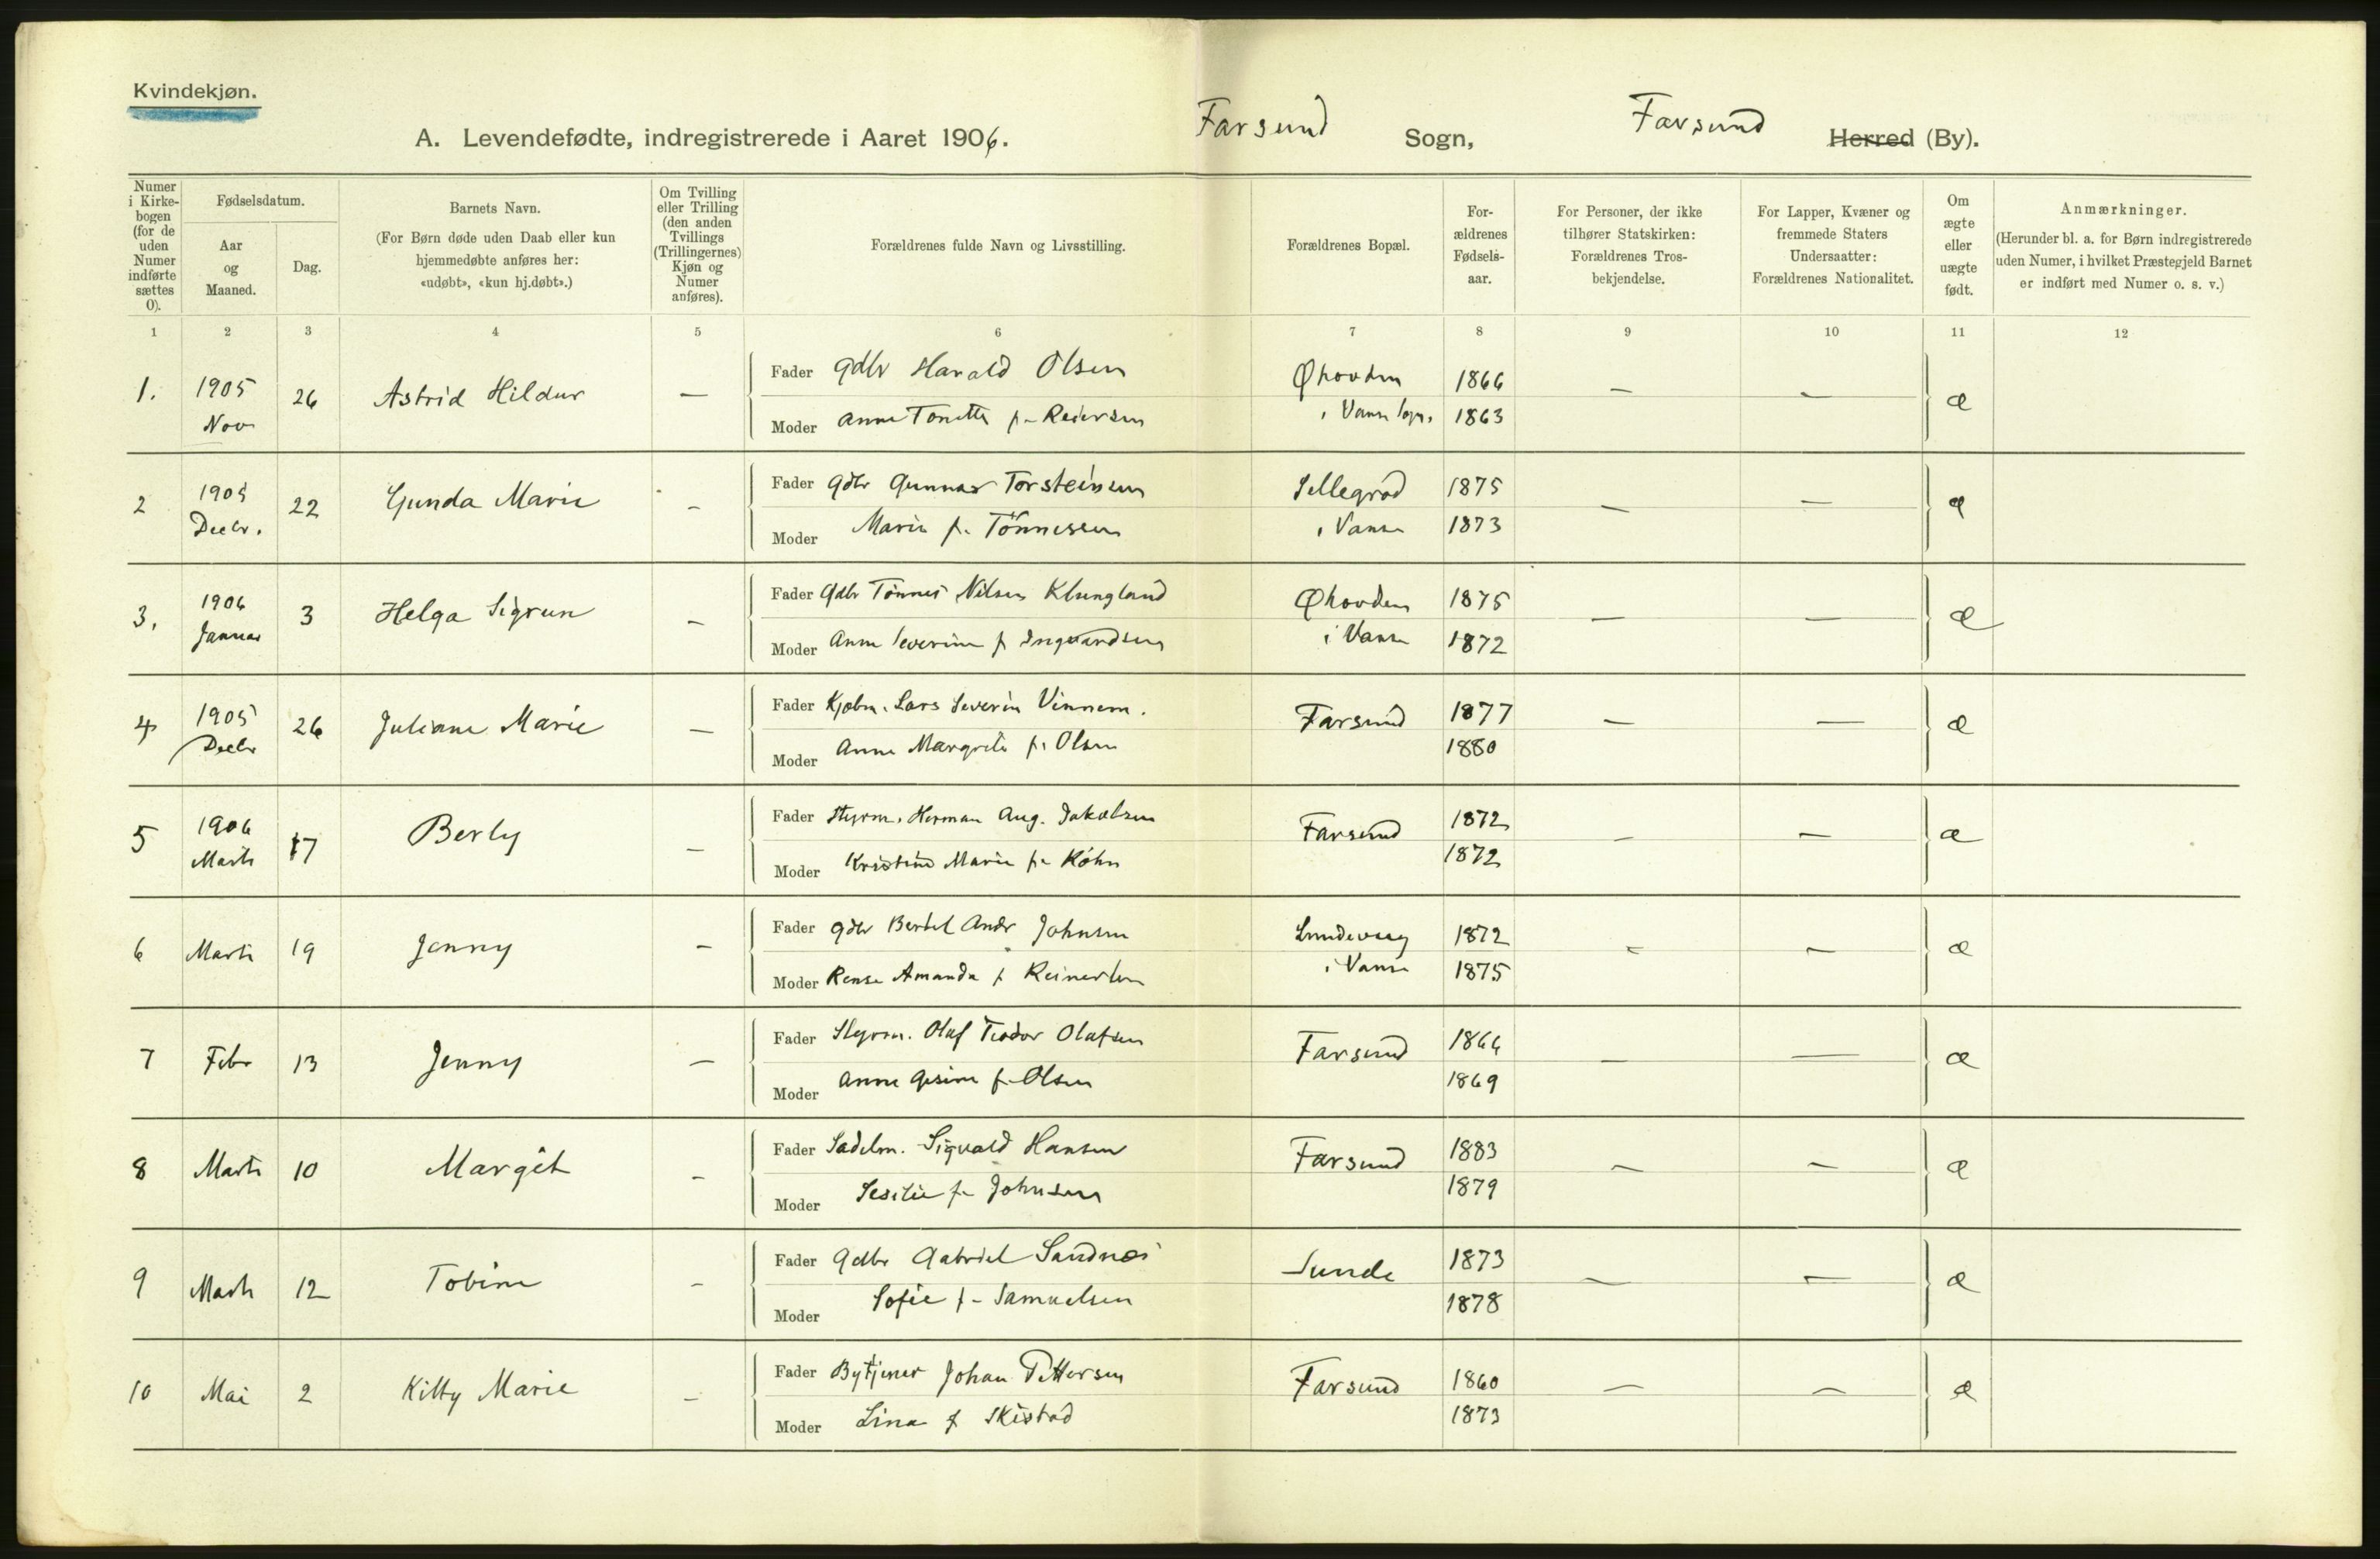 Kvindekjøn.
A. Levendefødte, indregistrerede i Aaret 1906. Farsund Sogn, Farsund Herred (By).
Numer i Kirkebogen (for de uden Numer indførte sættes 0).
Fødselsdatum.
Aar og Maaned.
Dag.
Barnets Navn.
(For Børn døde uden Daab eller kun hjemmedøbte anføres her: «udøbt», «kun hj.døbt».)
Om Tvilling eller Trilling (den anden Tvillings (Trillingernes) Kjøn og Numer anføres).
Forældrenes fulde Navn og Livsstilling.
Forældrenes Bopæl.
Forældrenes Fødselsaar.
For Personer, der ikke tilhører Statskirken: Forældrenes Trosbekjendelse.
For Lapper, Kvæner og fremmede Staters Undersaatter: Forældrenes Nationalitet.
Om ægte eller uægte født.
Anmærkninger.
(Herunder bl. a. for Børn indregistrerede uden Numer, i hvilket Præstegjeld Barnet er indført med Numer o. s. v.)
1 2 3 4 5 6 7 8 9 10 11 12
1. 1905 Nov 26 Astrid Hildur — Fader Gdbr Harald Olsen Øhovden 1866 — — æ
Moder Anne Tonette f. i Vanse Sogn. 1863
2 1905 Decbr. 22 Gunda Marie - Fader Gdbr Gunnar Torsteinsen 1875 — — æ
Moder Marie f. Tönnessen i Vanse 1873
3. 1906 Januar 3 Helga Sigrun - Fader Gdbr Tönnes Nilsen Klungland Øhovden 1875 — — æ
Moder Anne Severine f Ingvardsen i Vanse 1872
4 1905 Decbr 26 Juliane Marie — Fader Kjøbm. Lars Severin Vinnem. Farsund 1877 — — æ
Moder Anne Margrete f. Olsen 1880
5 1906 Marts 17 Berly - Fader Styrm. Herman Aug. Jakobsen Farsund 1872 — — æ
Moder Kristine Marie f. Köhn 1872
6 Marts 19 Jenny - Fader Gdbr Bertel Andr Johnsen Lundevaag 1872 - — æ
Moder Amanda f Reinertsen i Vanse 1875
7 Febr 13 Jenny — Fader Styrm. Olaf Teodor Olafsen Farsund 1866 — — æ
Moder Anne Gesine f. Olsen 1869
8 Marts 10 Margit - Fader Sadelm. Sigvald Hansen Farsund 1883 — — æ
Moder Sesilie f. Johnsen 1879
9 Marts 12 Tobine - Fader Gdbr Gabriel Sandnes Sunde 1873 — — æ
Moder Sofie f. Samuelsen 1878
10 Mai 2 Kitty Marie - Fader Bytjener Johan Pettersen Farsund 1860 — — æ
Moder Lina f Skistad 1873